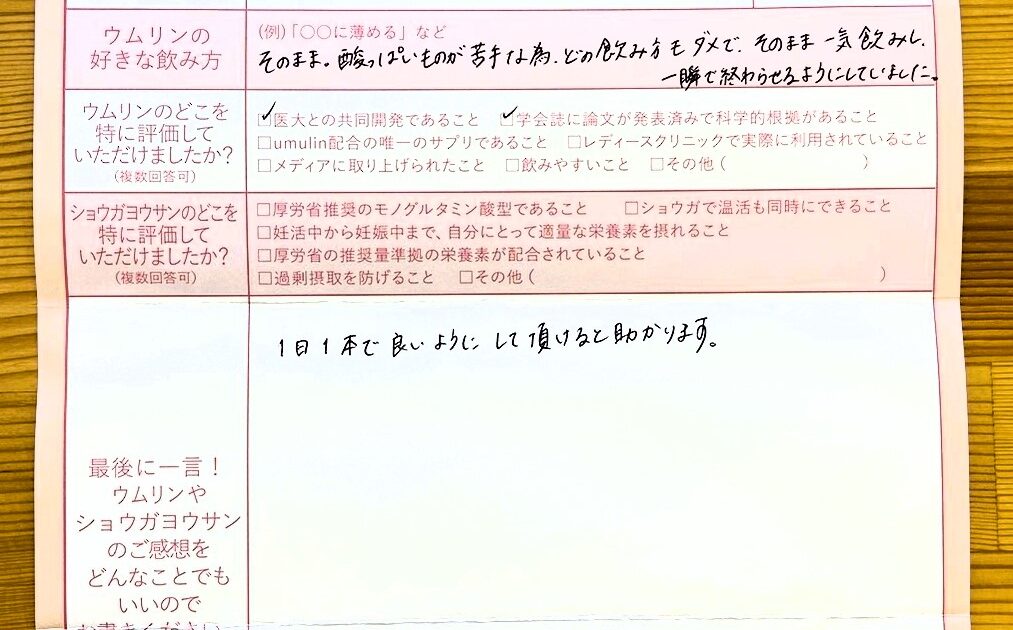 ウムリンの
好きな飲み方
(例)「〇〇に薄める」など
そのまま。酸っぱいものが苦手な為、どの飲み方もダメで、そのまま一気飲みし、
一瞬で終わらせるようにしていました。
ウムリンのどこを
特に評価して
いただけましたか?
(複数回答可)
☑医大との共同開発であること ☑学会誌に論文が発表済みで科学的根拠があること
□umulin配合の唯一のサプリであること □レディースクリニックで実際に利用されていること
□メディアに取り上げられたこと □飲みやすいこと □その他( )
ショウガヨウサンのどこを
特に評価して
いただけましたか?
(複数回答可)
□厚労省推奨のモノグルタミン酸型であること □ショウガで温活も同時にできること
□妊活中から妊娠中まで、自分にとって適量な栄養素を摂れること
□厚労省の推奨量準拠の栄養素が配合されていること
□過剰摂取を防げること □その他( )
1日1本で良いようにして頂けると助かります。
最後に一言!
ウムリンや
ショウガヨウサン
のご感想を
どんなことでも
いいので
お書きください